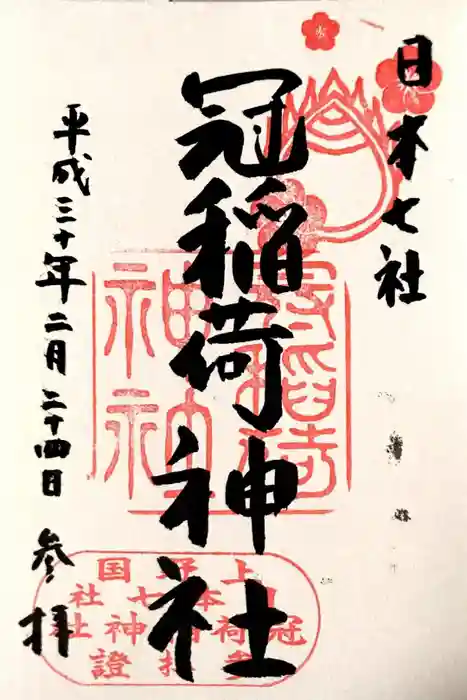 日本七社
冠稲荷神社
平成三十年二月二十四日　参拝
冠稲荷
神社
上野国
日本七社
冠稲荷神社
参拝證